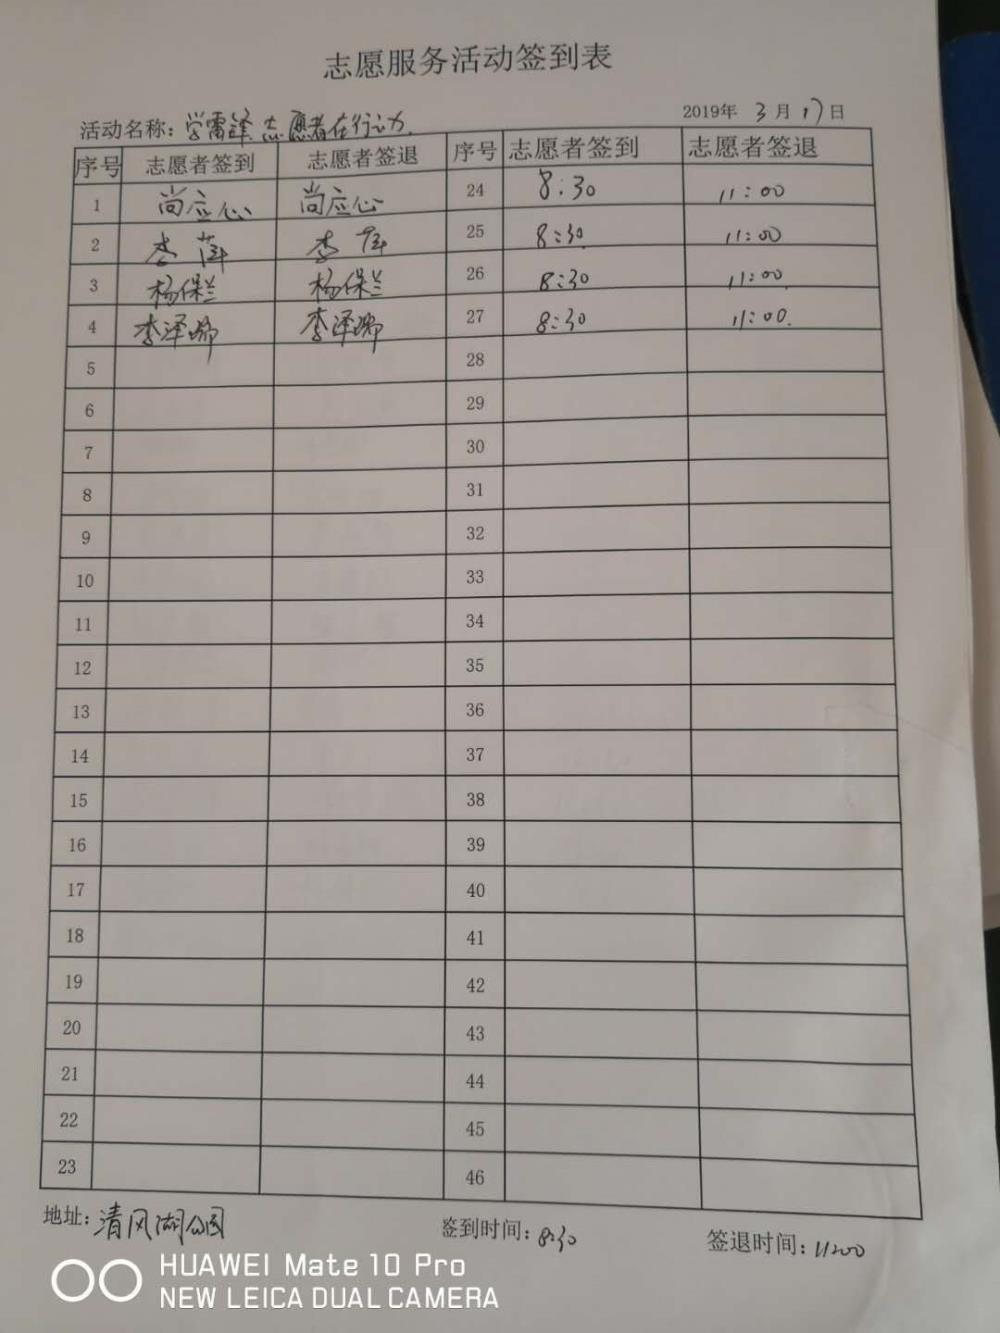 志愿服务活动签到表
活动名称：学雷锋 志愿者在行动
2019年 3 月 17 日
序号 志愿者签到 志愿者签退 序号 志愿者签到 志愿者签退
1 尚应心 尚应心 24 8:30 11:00
2 李萍 李萍 25 8:30 11:00
3 杨保兰 杨保兰 26 8:30 11:00
4 李泽瑞 李泽瑞 27 8:30 11:00
5 28
6 29
7 30
8 31
9 32
10 33
11 34
12 35
13 36
14 37
15 38
16 39
17 40
18 41
19 42
20 43
21 44
22 45
23 46
地址：清风湖公园 签到时间：8:30 签退时间：11:00
HUAWEI Mate 10 Pro
NEW LEICA DUAL CAMERA